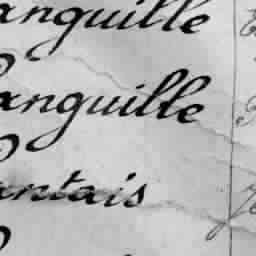 anguille
anguille
antais